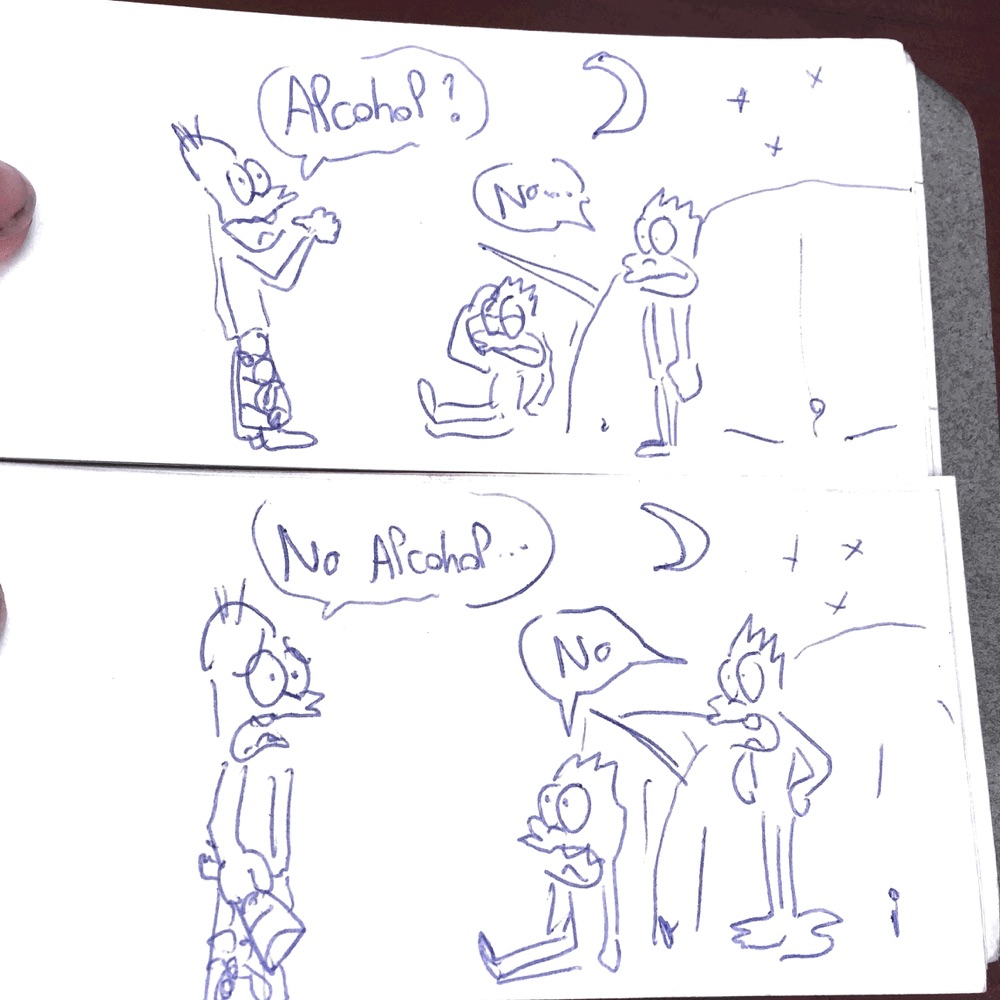 Alcohol?
No...
No Alcohol...
No